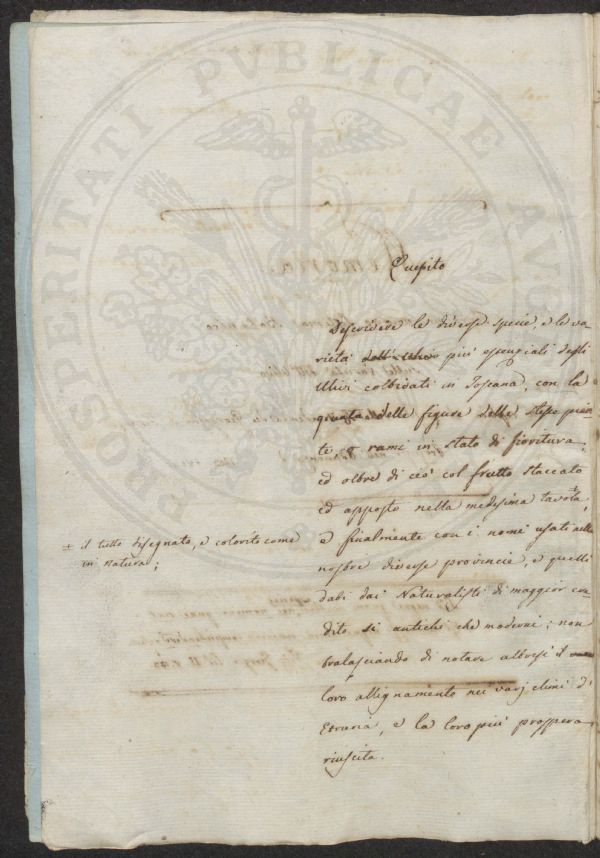 PROSPERITATI PVBLICAE AVG
Quesito
Descrivere le diverse specie, e le va-
rietà più essenziali degli
Ulivi coltivati in Toscana, con la
giunta delle figure delle stesse pian-
te, e rami in stato di fioritura,
ed oltre di ciò col frutto staccato
ed apposto nella medesima tavola, ±
e finalmente con i nomi usati nelle
nostre diverse provincie, e quelli
dati dai Naturalisti di maggior cre-
dito sì antichi che moderni; non
tralasciando di notare altresì il
loro allignamento nei varj climi d'
Etruria, e la loro più prospera
riuscita.
± il tutto disegnato, e colorito come
in natura;